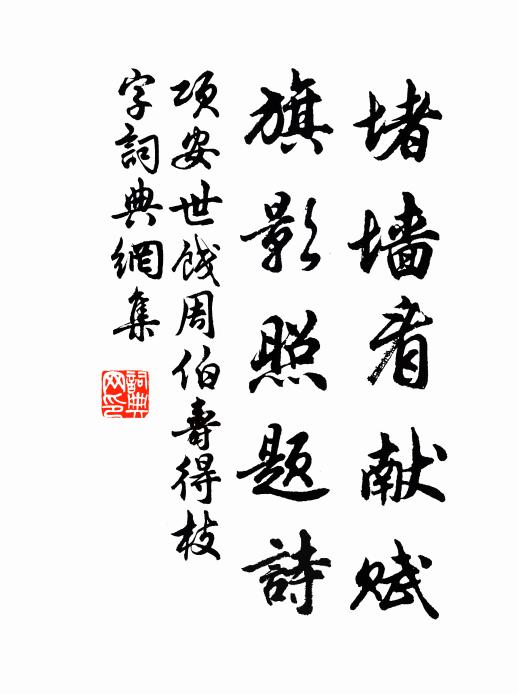 堵墙看献赋
旗影照题詩
项安世餞周伯壽得枝
字詞典網集
詞典
网印